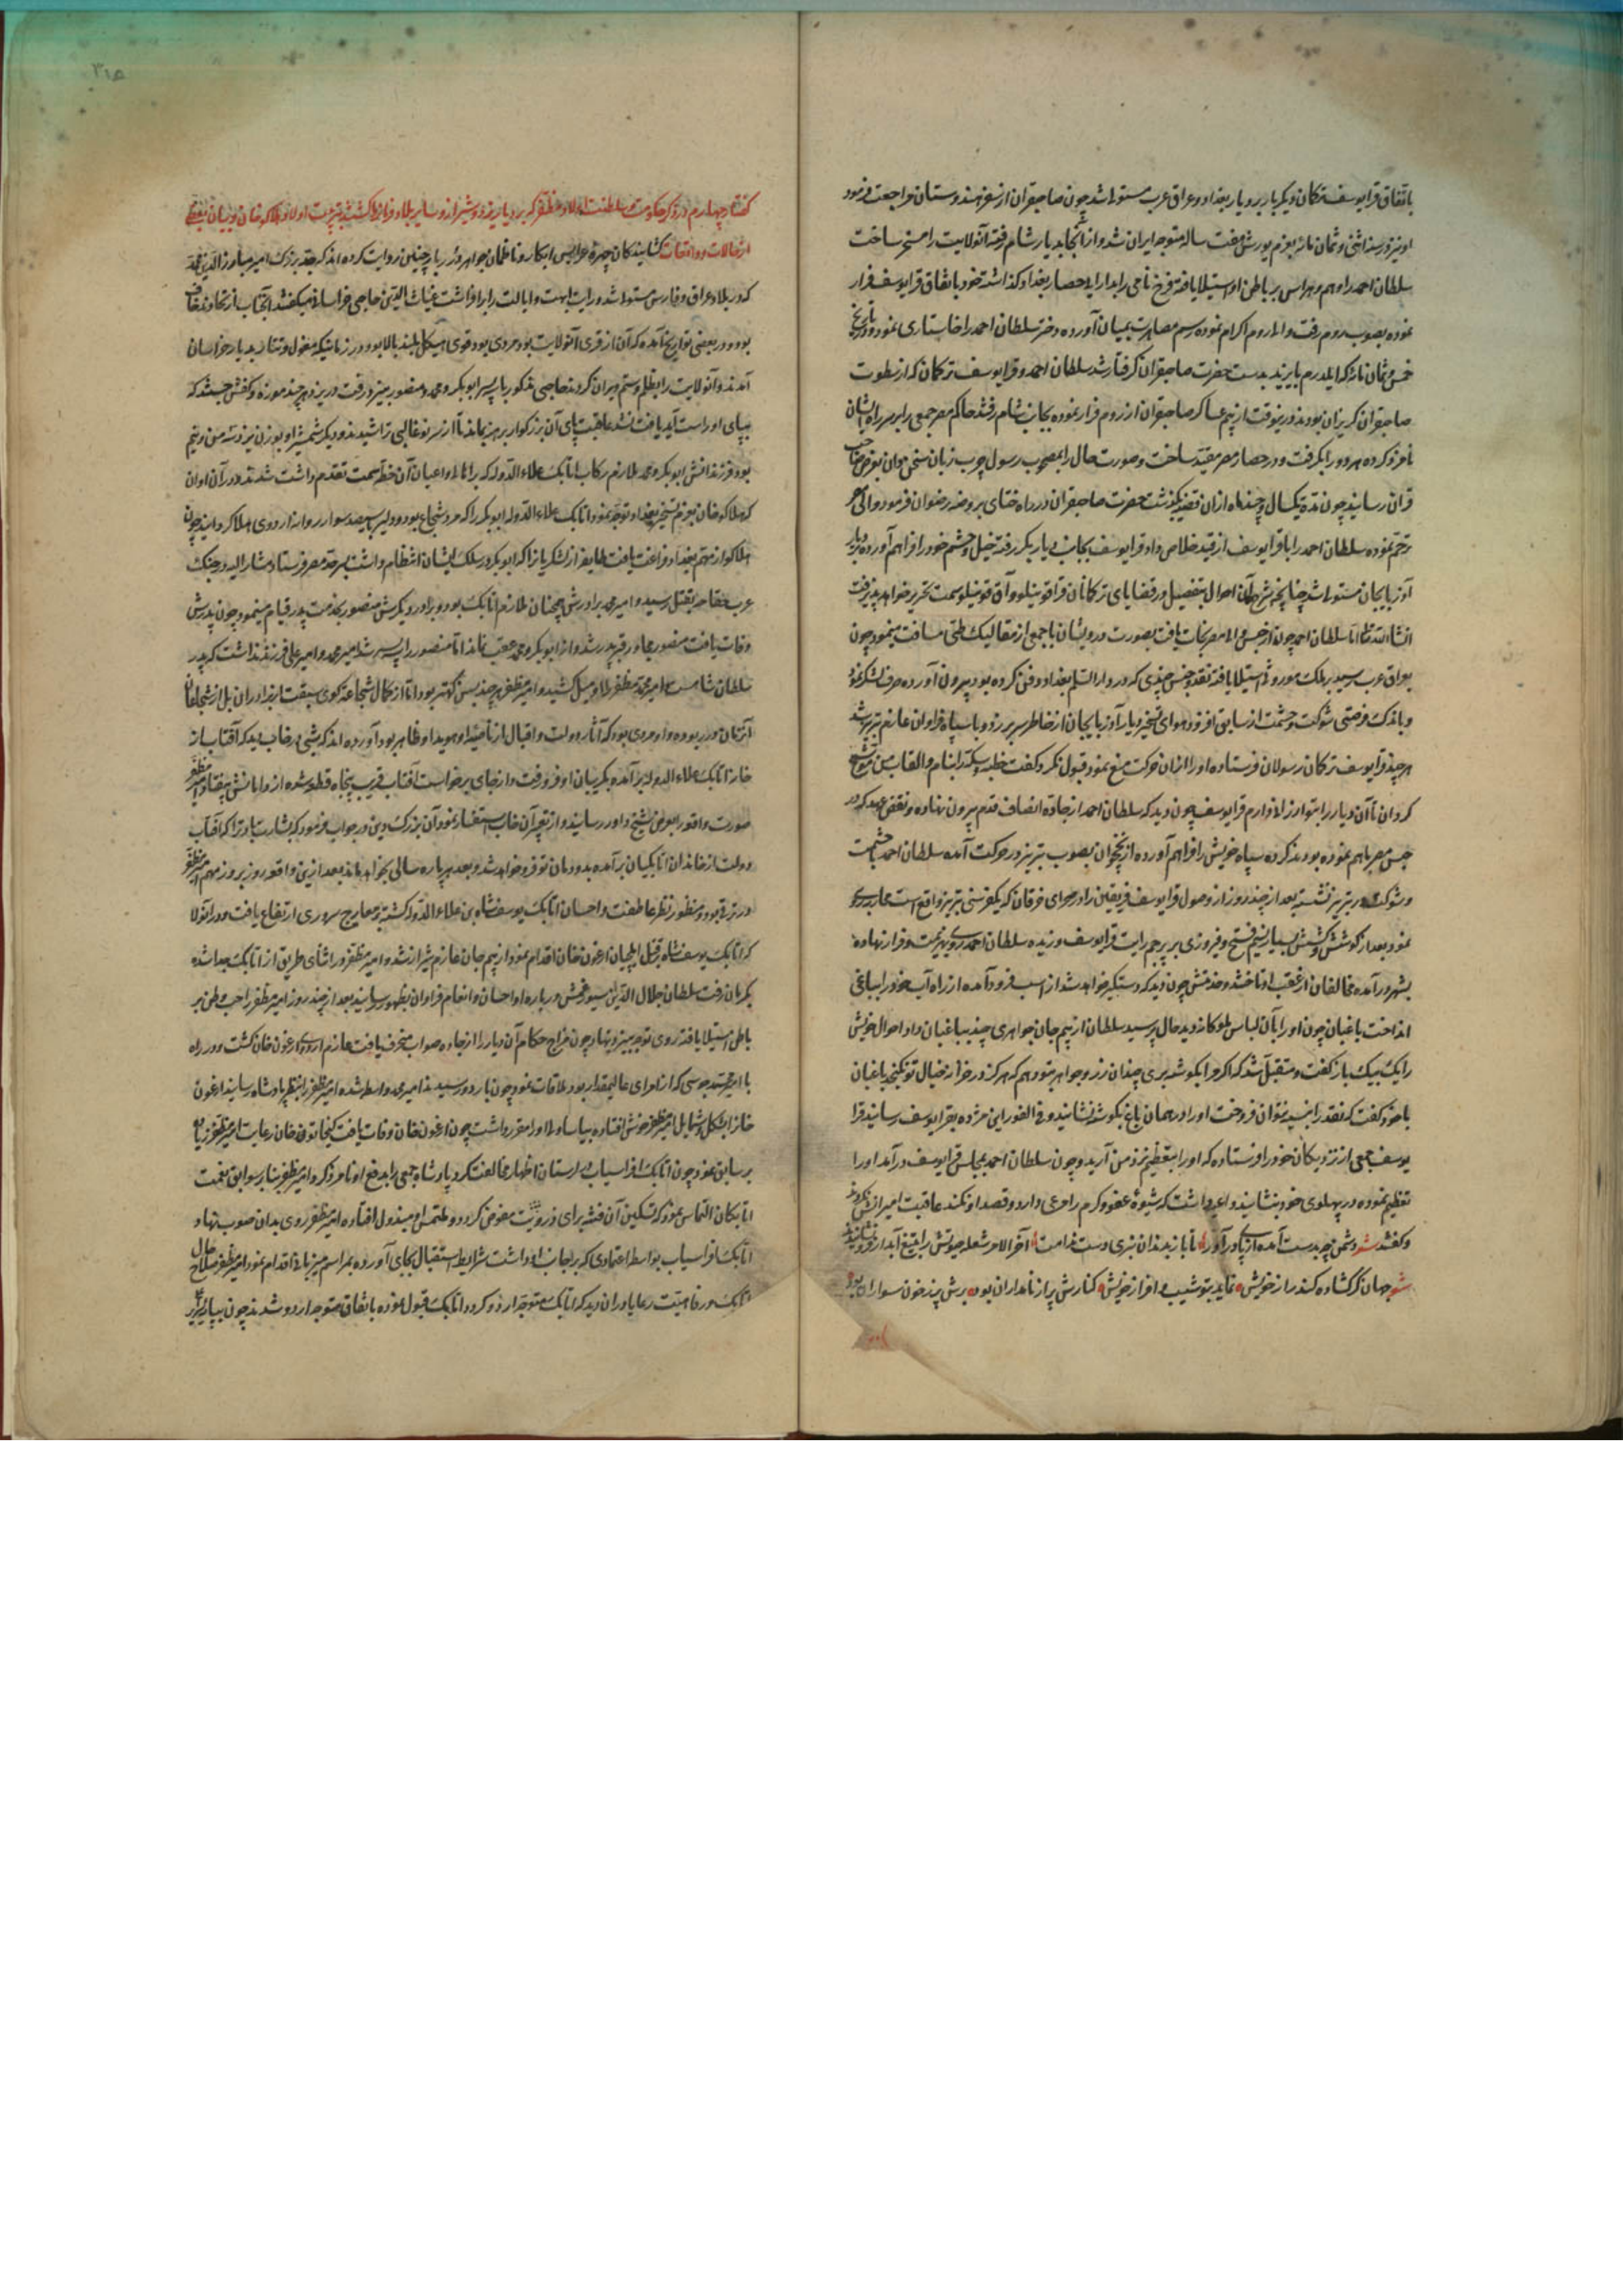 باتفاق قرا یوسف ترکمان دیگر بار بر دیار بغداد و عراق عرب مستولی شد چون صاحبقران از سفر هندوستان مراجعت فرمود
او نیز در سنه اثنی و ثمان مائه بعزم یورش هفت ساله متوجه ایران شد و از آنجا بدیار شام رفته آنولایت را مسخر ساخت
سلطان احمد را وهم و هراس بر باطن او استیلا یافته فرخ نامی را بدارایی حصار بغداد گذاشته خود باتفاق قرا یوسف فرار
نموده بصوب روم رفت و والی روم اکرام نموده رسم مصاهرت بمیان آورده دختر سلطان احمد را خاستاری نمود و در تاریخ
خمس و ثمان مائه که ایلدرم بایزید بدست حضرت صاحبقران گرفتار شد سلطان احمد و قرا یوسف ترکمان که از سطوت
صاحبقران گریزان بودند درینوقت از بیم عساکر صاحبقران از روم فرار نموده بجانب شام رفتند حاکم مصر جمعی را بر سر راه ایشان
نامزد کرده هر دو را بگرفت و در حصار مصر مقید ساخت و صورت حال را بمصحوب رسول چرب زبان سخن دان بعرض صاحب
قران رسانید چون مدة یکسال و چند ماه ازان قضیه بگذشت حضرت صاحبقران در راه ختای بروضه رضوان فرمود و والی مصر
ترحم نموده سلطان احمد را با قرا یوسف از قید خلاص داد و قرا یوسف بجانب دیار بکر رفته خیل و حشم خود را فراهم آورده بر دیار
آذربایجان مستولی شد چنانچه شرح آن احوال بتفصیل در قضایای ترکمانان قراقوینلو و آق قوینلو سمت تحریر خواهد پذیرفت
انشا الله تعالی اما سلطان احمد چون از حبس والی مصر نجات یافت بصورت درویشان با جمعی از ممالیک طی مسافت مینمود چون
بعراق عرب رسید بر ملک موروثی استیلا یافته نقد و جنس چندی که در دار السلام بغداد دفن کرده بود بیرون آورده صرف لشکر نمود
و باندک فرصتی شوکت و حشمت از سابق افزود هوای تسخیر دیار آذربایجان از خاطر سر بر زد و با سپاه فراوان عازم تبریز شد
هر چند قرا یوسف ترکمان رسولان فرستاده او را ازان حرکت منع نمود قبول نکرد و گفت خطبه و سکه را بنام و القاب من موشح
گردان تا آن دیار را بتو ارزانی دارم قرا یوسف چون دید که سلطان احمد از جادهٔ انصاف قدم بیرون نهاده و نقض عهد که در
حبس مصر باهم نموده بودند کرده سپاه خویش را فراهم آورده از نخجوان بصوب تبریز در حرکت آمد سلطان احمد با حشمت
و شوکت در تبریز نشسته بعد از چند روز از وصول قرا یوسف فریقین را در صحرای فرقان که یکفرسخی تبریز واقع است محاربه روی
نمود بعد از کوشش و کشش بسیار نسیم فتح و فیروزی بر پرچم رایت قرا یوسف وزیده سلطان احمد روی بهزیمت و فرار نهاده
بشهر درآمد مخالفان از عقب او تاختند چون دید که دستگیر خواهد شد از اسب فرود آمده از راه آب خود را بباغی
انداخت باغبان چون او را با آن لباس ملوکانه دید حال پرسید سلطان از بیم جان جواهری چند بباغبان داد و احوال خویش
را یک بیک باز گفت و متقبل شد که اگر مرا بگوشه بری چندان زر و جواهر بتو دهم که هرگز در خزانه خیال تو نگنجد باغبان
با خود گفت که نقد را بنسیه نتوان فروخت او را در همان باغ بگوشه نشانید و فی الفور این مژده بقرا یوسف رسانید قرا
یوسف جمعی از نزدیکان خود را فرستاده که او را بتعظیم نزد من آرید و چون سلطان احمد بمجلس قرا یوسف درآمد او را
تعظیم نموده در پهلوی خود بنشانید و داعیه داشت که شیوهٔ عفو و کرم را مرعی دارد و قصد او نکند عاقبت امیرانش نگذاشتند
و گفتند شعر دشمن چو بدست آمده از پای درآور تا باز بدندان نبری دست ندامت آخر الامر شعله حیوتش را بتیغ آبدار فرو نشانیدند
شعر جهان گر گشاده کند راز خویش نماید بتو شیب و افراز خویش کنارش پر از نامداران بود برش پر ز خون سواران بود
۳۱۵
گفتار چهارم در ذکر حکومت و سلطنت اولاد مظفر که بر دیار یزد و شیراز و سایر بلاد فرمانروا گشتند بتربیت اولاد هلاکو خان و بیان بعضی
از حالات و واقعات گشایندگان چهرهٔ عرایس ابکار و ناظمان جواهر درر بار چنین روایت کرده اند که جد بزرگ امیر مبارز الدین محمد
که در بلاد عراق و فارس مستولی شد و رایت ابهت و ایالت را برافراشت غیاث الدین حاجی خراسانی میگفتند آنجناب از خواف
بود و در بعضی تواریخ آمده که آن از قرای آنولایت بود مردی بود قوی هیکل بلند بالا بود و در زمانیکه مغول و تتار بدیار خراسان
آمدند و آنولایت را بظلم و ستم ویران کردند حاجی مذکور با سه پسر ابو بکر و محمد و منصور بیزد رفت در یزد هر چند موزه و کفش جستند که
بپای او راست آید یافت نشد عاقبت پای آن بزرگوار برهنه بماند تا از سر نو قالبی تراشیدند و دیگر شمشیر او بوزن نیز دو من و نیم
بود فرزندانش ابو بکر و محمد ملازم رکاب اتابک علاء الدوله که بر اهالی و اعیان آن خطه سمت تقدم داشت شدند و در آن اوان
که هلاکو خان بعزم تسخیر بغداد توجه نمود اتابک علاء الدوله ابو بکر را که مرد شجاع بود و دلیر با سیصد سوار روانه اردوی هلاکو گردانید چون
هلاکو از مهم بغداد فراغت یافت طایفه از لشکریان را که ابو بکر در سلک ایشان انتظام داشت بسرحد مصر فرستاد مشار الیه در جنگ
عرب خفاجه بقتل رسید و امیر محمد برادرش همچنان ملازم اتابک بود و برادر دیگرش منصور بخدمت پدر قیام مینمود چون پدرش
وفات یافت منصور مجاور قبر پدر شد و از ابو بکر و محمد عقب نماند اما منصور را سه پسر شد امیر محمد و امیر علی فرزند نداشت که پدر
سلطان شاه است امیر محمد مظفر
آنزمان در ربوده و او مردی بود که آثار دولت و اقبال از ناصیهٔ او هویدا و ظاهر بود آورده اند که شبی در خاب دید که آفتاب از
خانه اتابک علاء الدوله برآمده بگریبان او فرو رفت و از جای برخاست آفتاب قریب پنجاه قطعه شده از دامانش بیفتاد امیر مظفر
صورت واقعه را بعرض شیخ داور رسانید و از تعبیر آن خاب استفسار نمود آن بزرگ دین در جواب فرمود که بشارت باد ترا که آفتاب
دولت از خاندان اتابکیان برآمده بدودمان تو فرو خواهد شد و بعد هر پاره سالی بخواهد ماند بعد ازین واقعه روز بروز مهم امیر مظفر
در ترقی بود و منظور نظر عاطفت و احسان اتابک یوسف شاه بن علاء الدوله گشته بمعارج سروری ارتفاع یافت و در آنولا
که اتابک یوسف شاه بر قتل ایلچیان ارغون خان اقدام نمود از بیم جان عازم شیراز شد و امیر مظفر در اثنای طریق از اتابک جدا شده
بکرمان رفت سلطان جلال الدین سیورغتمش در باره او احسان و انعام فراوان بظهور رسانید بعد از چند روز امیر مظفر را حب وطن بر
باطن استیلا یافته روی توجه بیزد نهاد چون مزاج حکام آن دیار را از جاده صواب منحرف یافت عازم اردوی ارغون خان گشت و در راه
با امیر محمد جوشی که از امرای عالیمقدار بود ملاقات نمود چون باردو رسیدند امیر محمد واسطه شده امیر مظفر را بنظر پادشاه رسانید ارغون
خان را شکل و شمایل امیر مظفر خوش افتاده بیاساولی او را مقرر داشت چون ارغون خان وفات یافت کیخاتون خان رعایت امیر مظفر زیاده
بر سابق نمود چون اتابک افراسیاب در لرستان اظهار مخالفت کرد پادشاه جمعی را بدفع او نامزد کرد و امیر مظفر بنا بر سوابق نعمت
اتابکان التماس نمود که تسکین آن فتنه برای ذرویت مفوض گردد و ملتمس او مبذول افتاده امیر مظفر روی بدان صوب نهاد و
اتابک افراسیاب بواسطه اعتمادی که بر جانب او داشت شرایط استقبال بجای آورده بمراسم میزبانی اقدام نمود امیر مظفر صلاح حال
اتابک و رفاهیت رعایا در ان دید که اتابک متوجه اردو گردد اتابک قبول نموده باتفاق متوجه اردو شدند چون بپایهٔ سریر